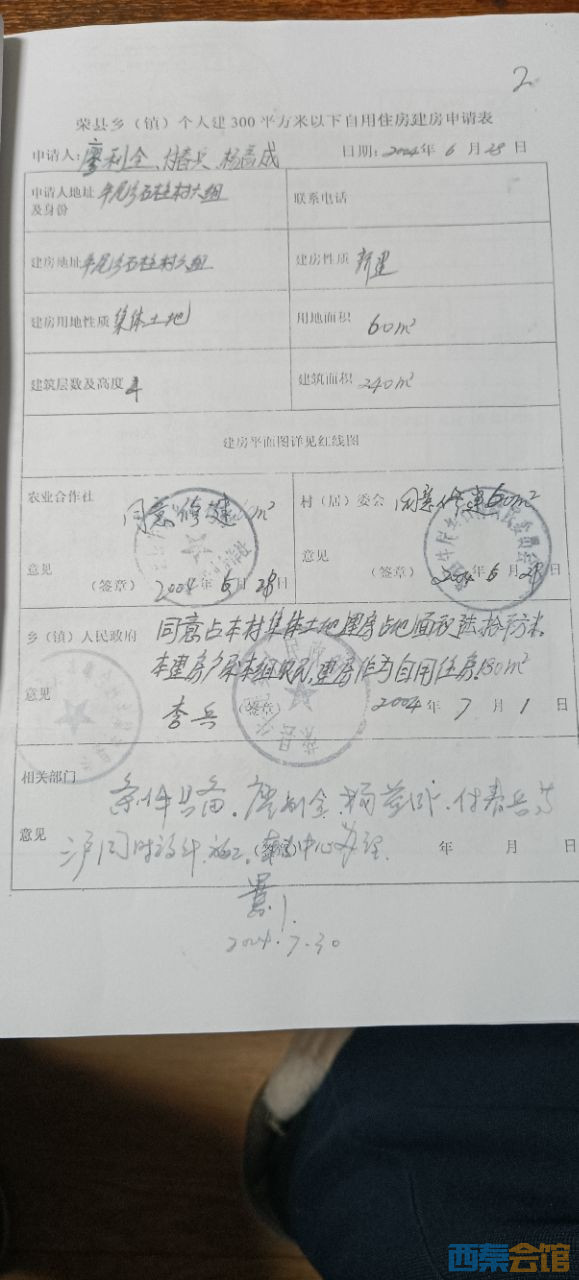 2
荣县乡（镇）个人建300平方米以下自用住房建房申请表
申请人：廖利全、付春兵、杨 成 日期：2004年6月28日
申请人地址及身份 牟尼 石柱村六组 联系电话
建房地址 牟尼 石柱村六组 建房性质 新建
建房用地性质 集体土地 用地面积 60m²
建筑层数及高度 4 建筑面积 240m²
建房平面图详见红线图
农业合作社 同意修建 m² 村（居）委会 同意修建60m²
意见 （签章） 2004年6月28日 意见 （签章） 2004年6月28日
乡（镇）人民政府 同意占本村集体土地建房占地面积陆拾平方米。
本建房户系本组农民，建房作为自用住房180m²
意见 李兵 （签章） 2004年7月1日
相关部门 条件具备。廖利全、杨 、付春兵等
意见 三户同时设计、施工。 中心办理。 （签章） 年 月 日
2004.7.30
西秦会馆